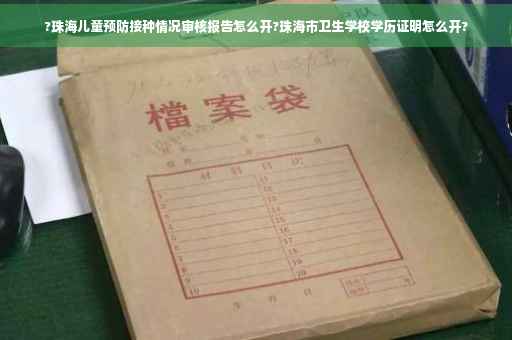 ?珠海儿童预防接种情况审核报告怎么开?珠海市卫生学校学历证明怎么开?
檔案袋
材料目次
1 11
2 12
3 13
4 14
5 15
6 16
7 17
8 18
9 19
10 20
年 月 日